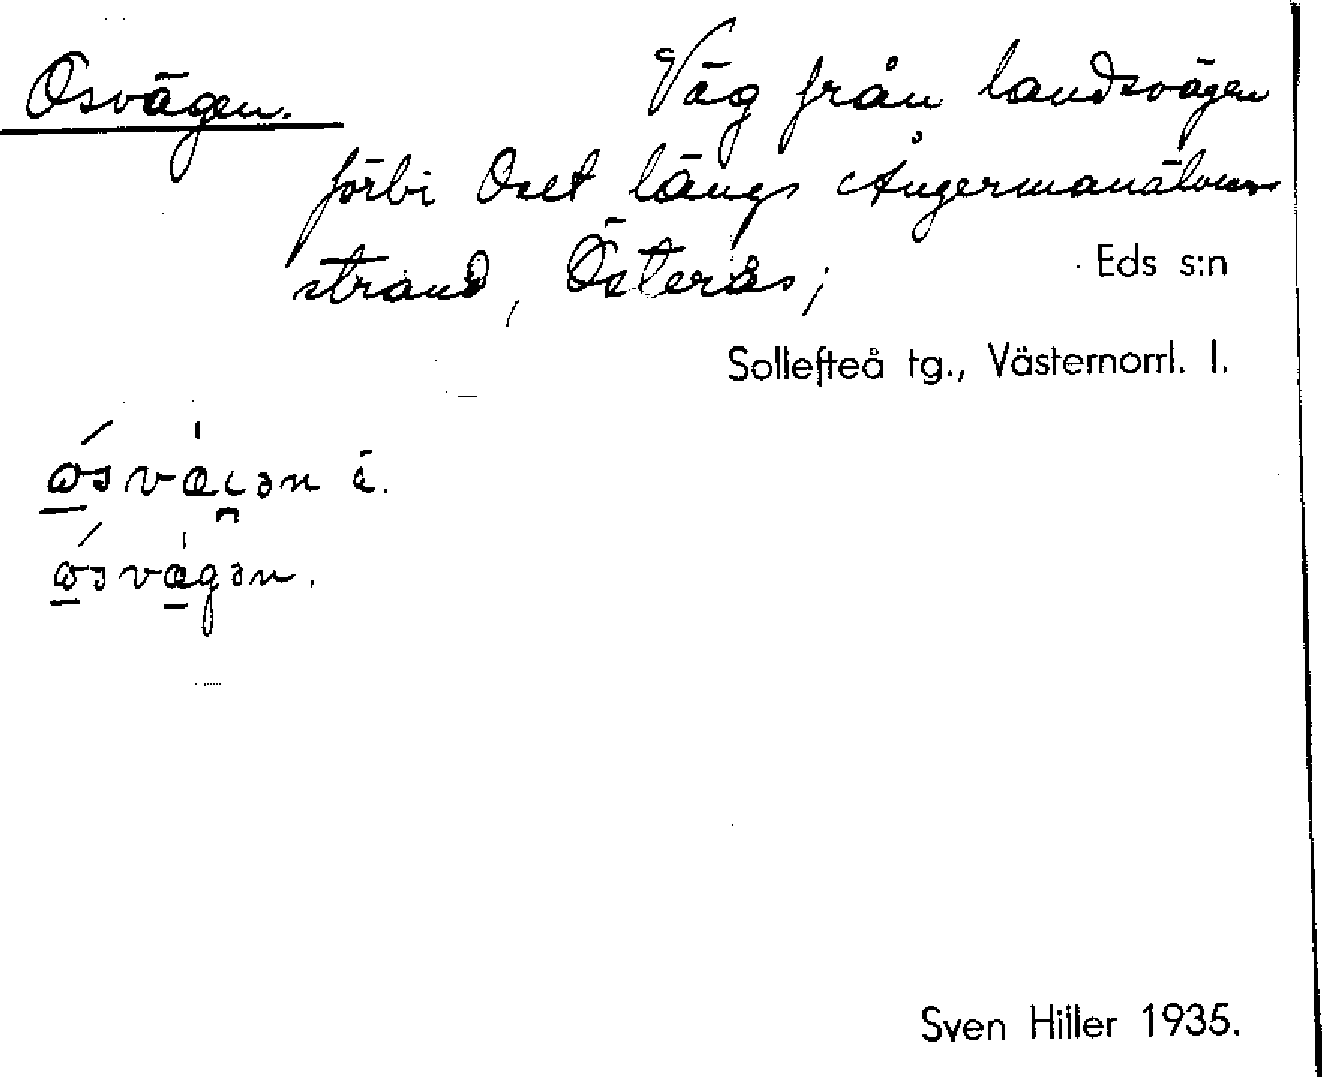 Osvägen. Väg från landsvägen
förbi Oset längs Ångermanälvens
strand, Österås; Eds s:n
Sollefteå tg., Västernorrl. l.
Sven Hiller 1935.